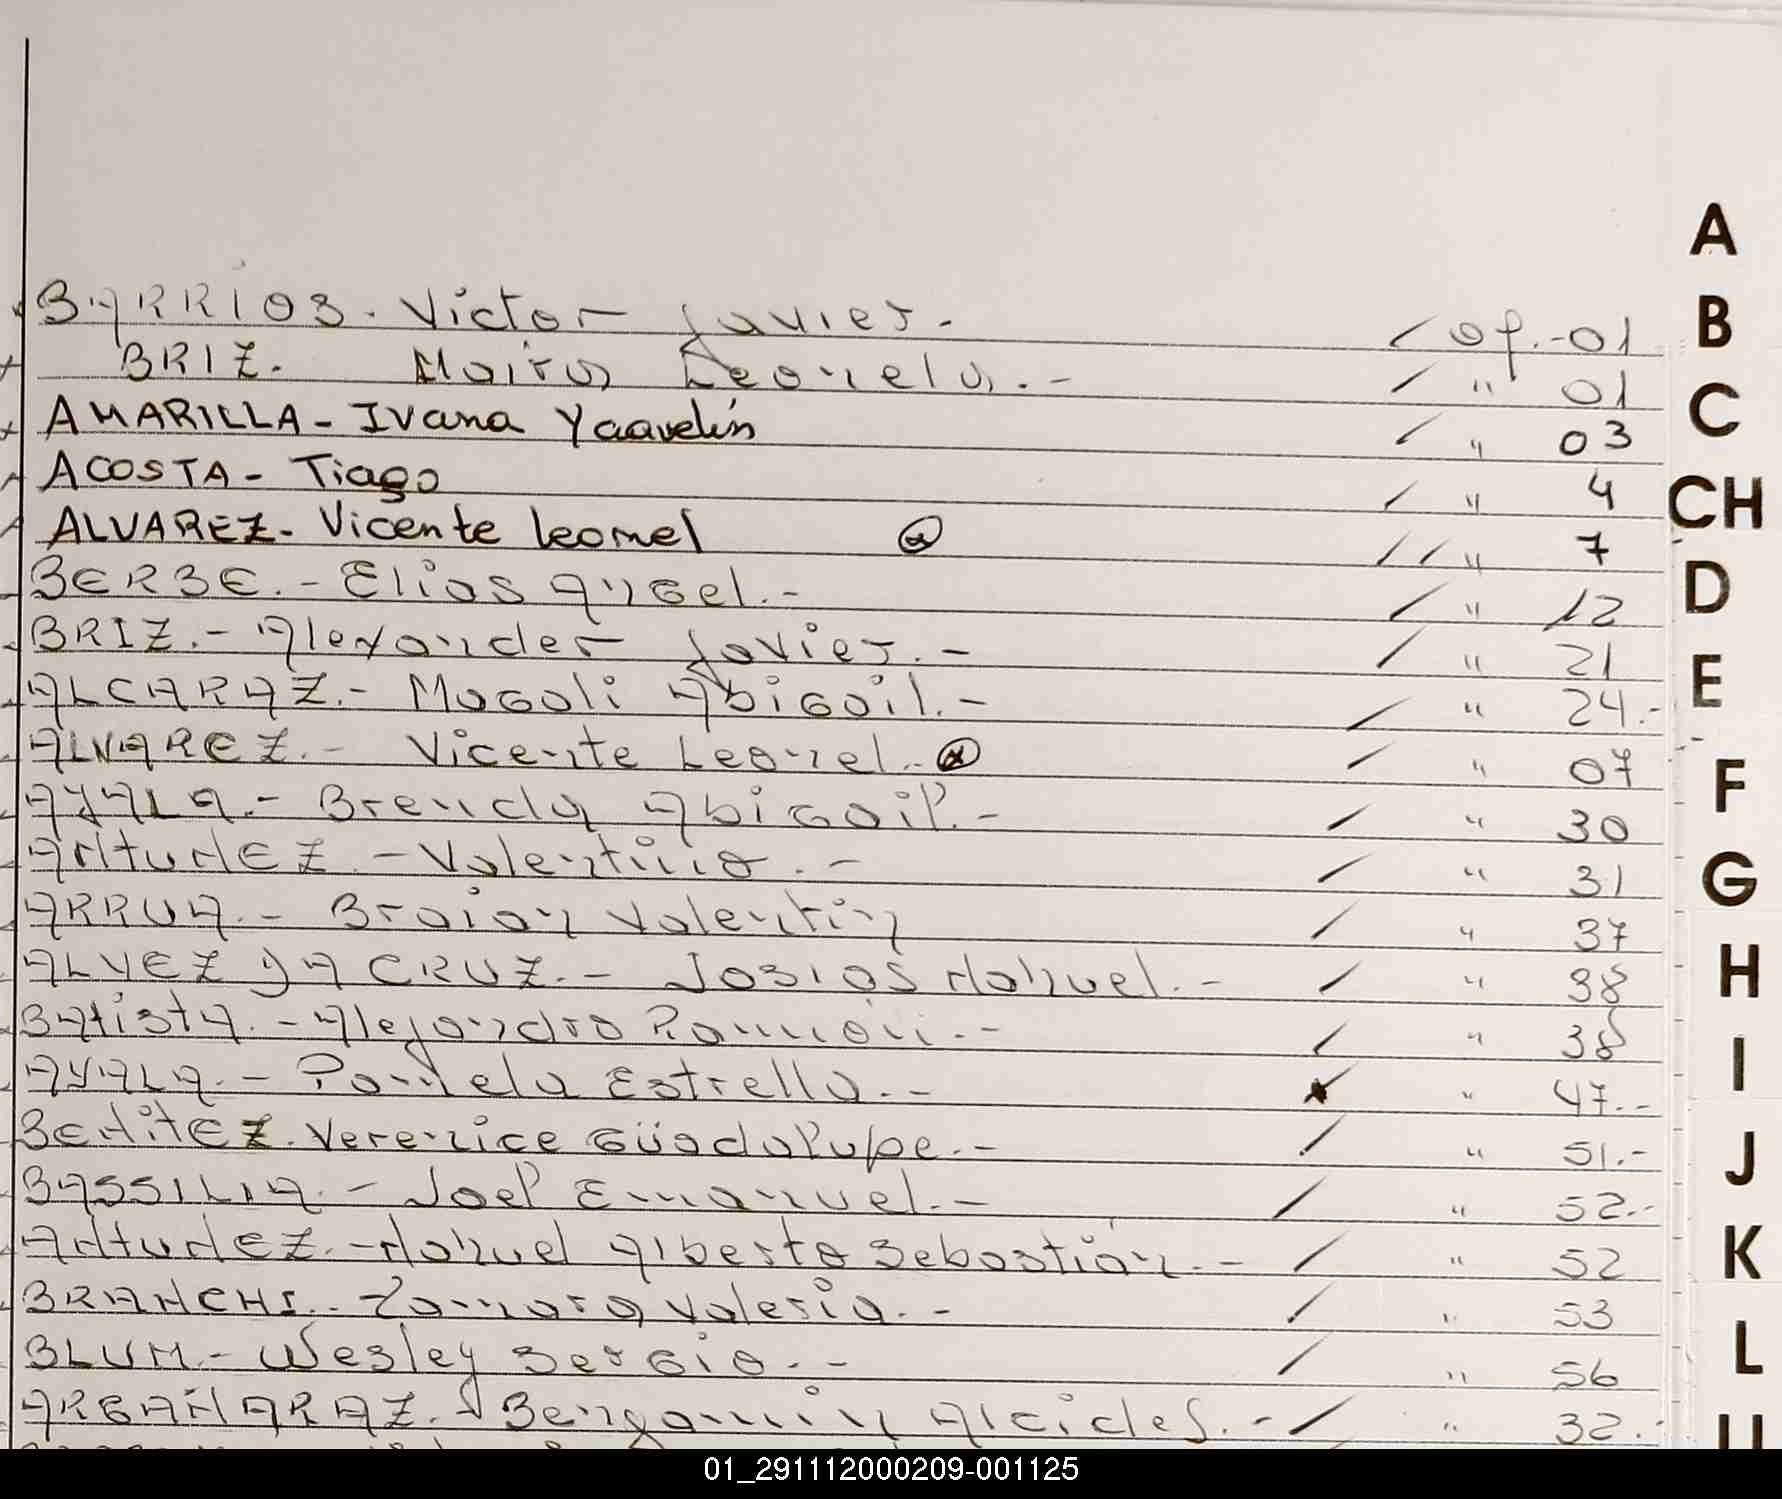 BARRIOS. Victor Javier. - / of.-01
BRIZ. Maira Leonela. - / " 01
AMARILLA - Ivana Yaavelin / " 03
ACOSTA - Tiago / " 4
ALVAREZ - Vicente Leonel // " 7
BERBE. - Elias Angel. - / " 12
BRIZ. - Alexander Javier. - / " 21
ALCARAZ. - Magali Abigail. - / " 24.-
ALVAREZ. - Vicente Leonel. / " 07
AYALA. - Brenda Abigail. - / " 30
ANTUNEZ. - Valentino. - / " 31
ARRUA. - Braian Valentin / " 37
ALVEZ DA CRUZ. - Josias Nahuel. - / " 38
BATISTA. - Alejandro Ramón. - / " 38
AYALA. - Pamela Estrella. - " 47.-
BENITEZ. Verenice Guadalupe. - / " 51.-
BASSILIA. - Joel Emanuel. - / " 52.-
ANTUNEZ. - Nahuel Alberto Sebastián. - / " 52
BRANCHI. - Tamara Valeria. - / " 53
BLUM. - Wesley Sergio. - / " 56
ARGAÑARAZ. - Benjamin Alcides. - / " 32.-
A
B
C
CH
D
E
F
G
H
I
J
K
L
01_291112000209-001125